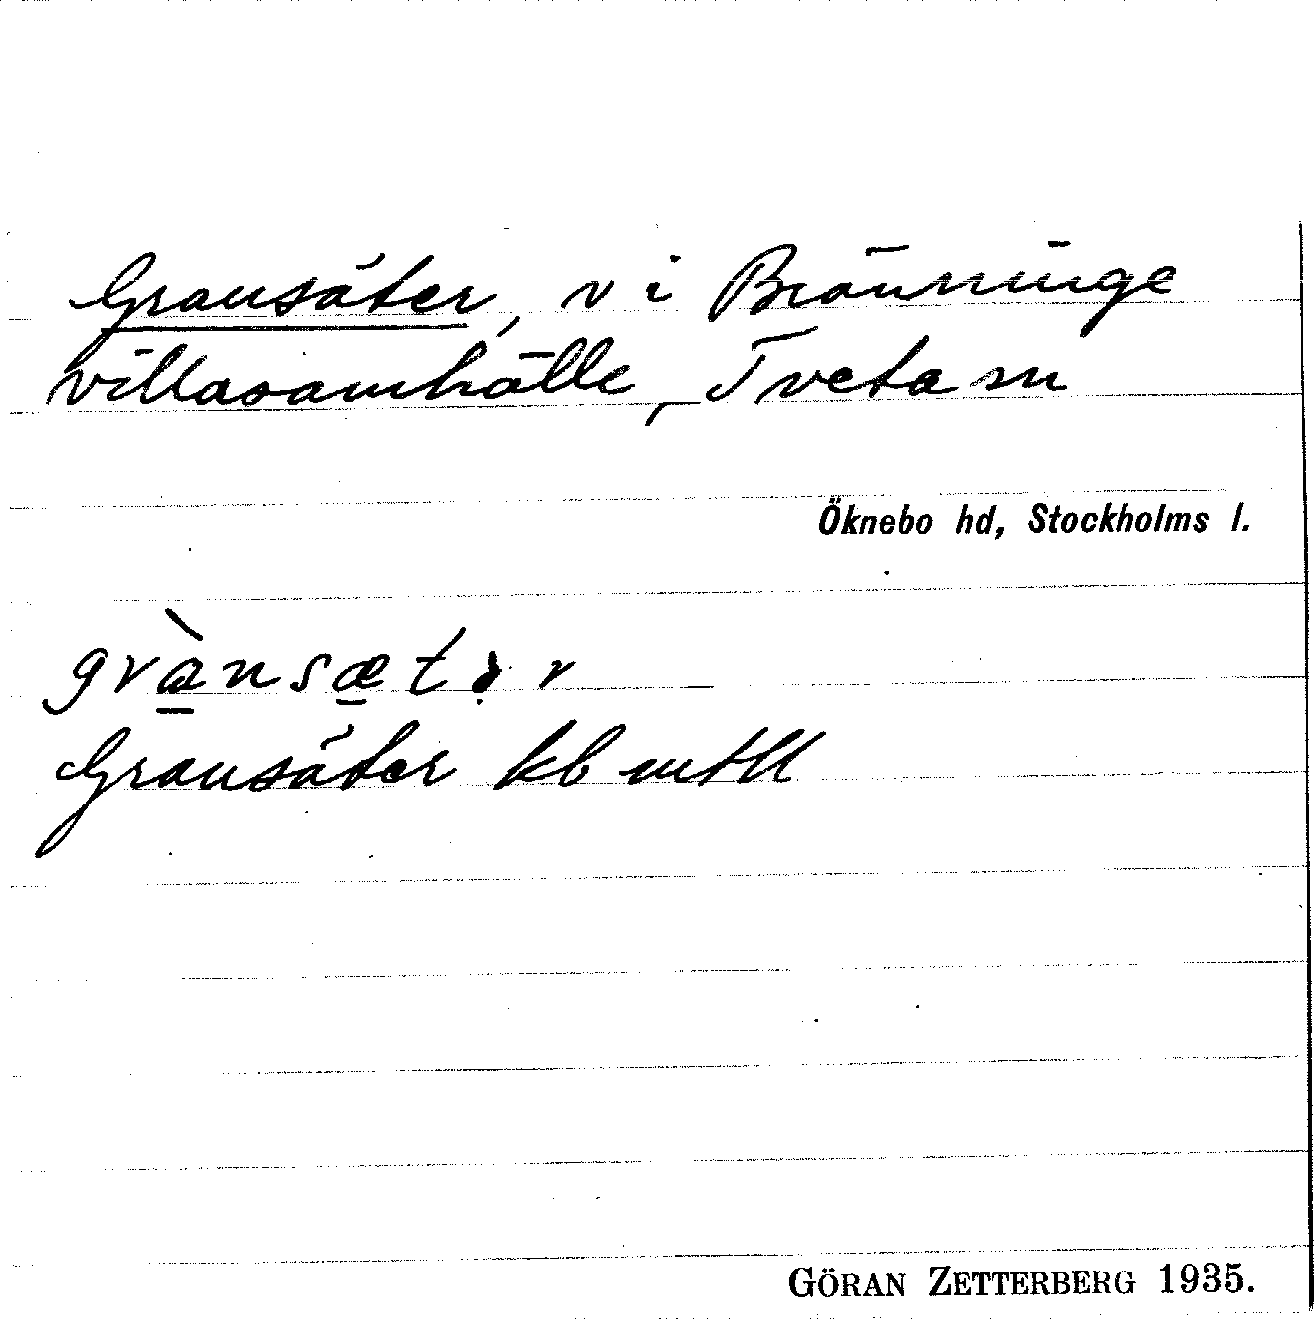 Gransäter, v i Brännинge
villasamhälle, Tveta sn
Öknebo hd, Stockholms l.
grànsætər
Gransäter kb mtll
GÖRAN ZETTERBERG 1935.